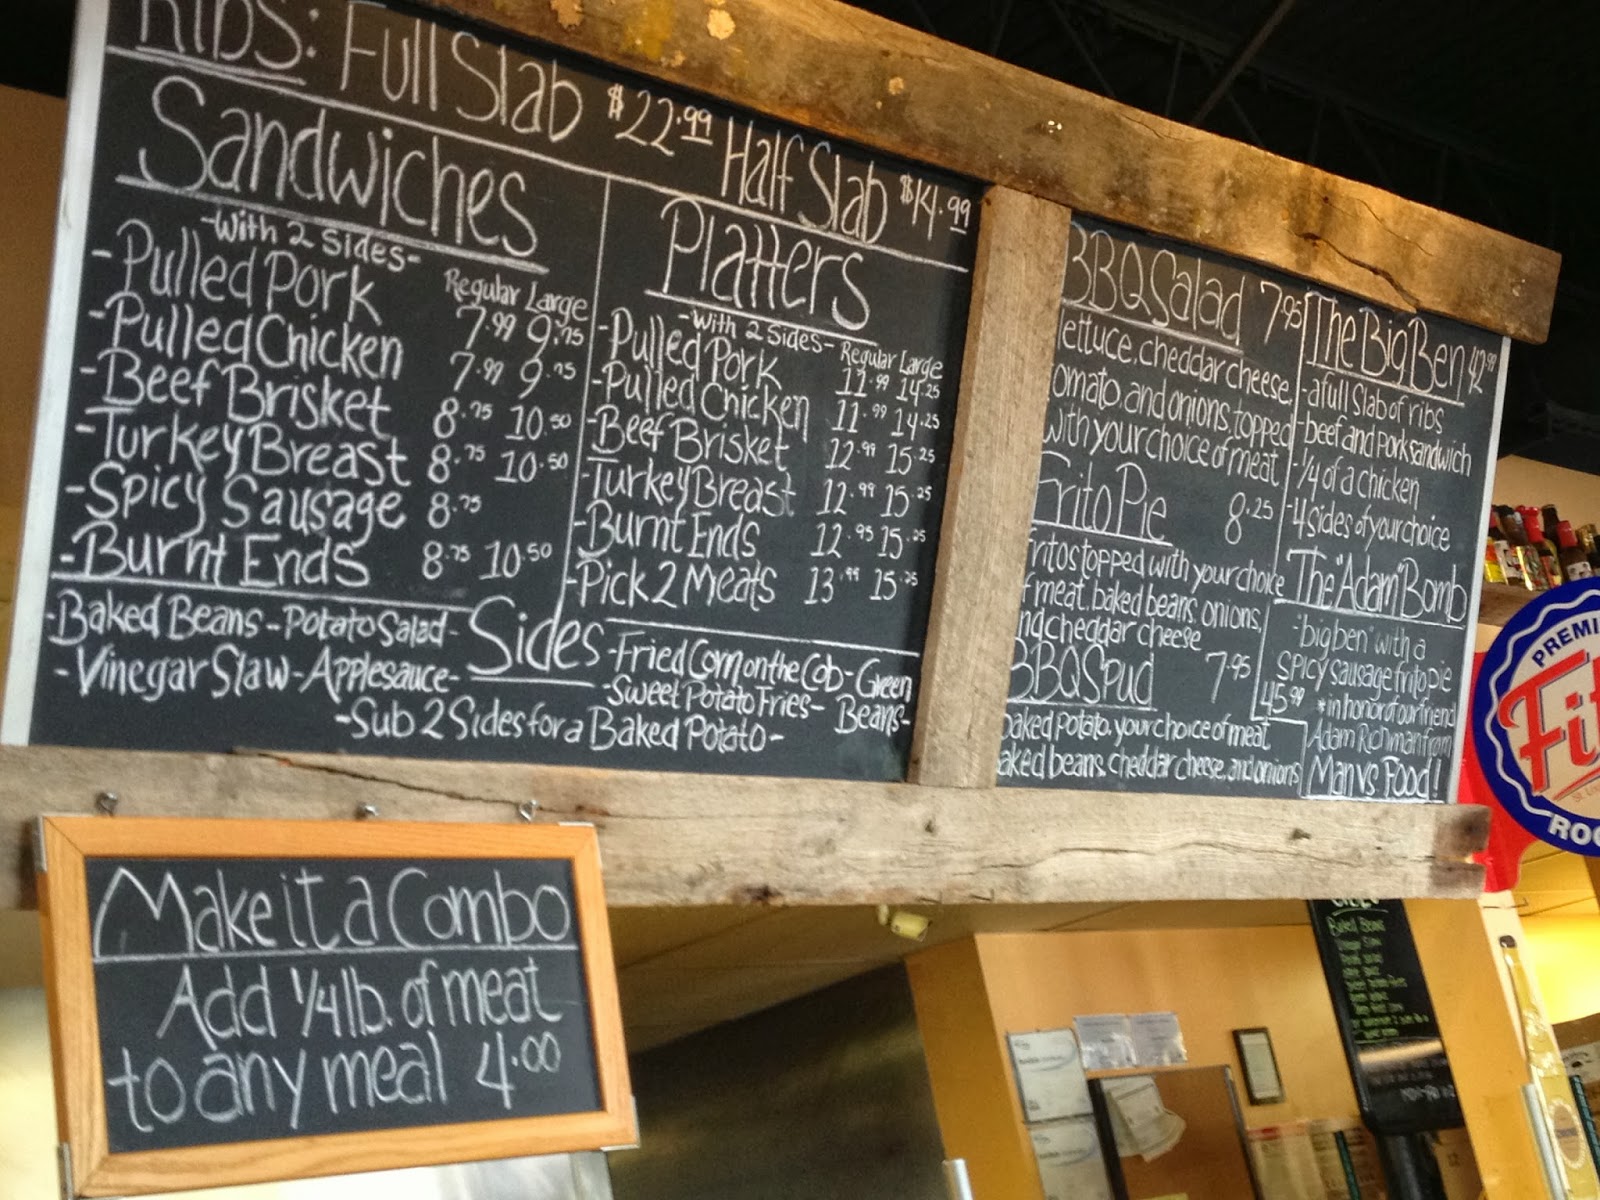 RIBS: Full Slab $22.99 Half Slab $14.99
Sandwiches
-With 2 Sides-
Regular Large
-Pulled Pork 7.99 9.75
-Pulled Chicken 7.99 9.75
-Beef Brisket 8.75 10.50
-Turkey Breast 8.75 10.50
-Spicy Sausage 8.75
-Burnt Ends 8.75 10.50
Platters
-With 2 Sides-
Regular Large
-Pulled Pork 11.99 14.25
-Pulled Chicken 11.99 14.25
-Beef Brisket 12.99 15.25
-Turkey Breast 12.99 15.25
-Burnt Ends 12.95 15.25
-Pick 2 Meats 13.99 15.25
Sides
-Baked Beans-Potato Salad-
-Vinegar Slaw-Applesauce-
-Fried Corn on the Cob-Green
-Sweet Potato Fries- Beans-
-Sub 2 Sides for a Baked Potato-
BBQ Salad 7.95
lettuce, cheddar cheese,
tomato, and onions, topped
with your choice of meat
Frito Pie 8.25
fritos topped with your choice
of meat, baked beans, onions,
and cheggar cheese
BBQ Spud 7.95
baked potato, your choice of meat
baked beans, cheddar cheese, and onions
The Big Ben 42.99
-a full slab of ribs
-beef and pork sandwich
-1/4 of a chicken
-4 sides of your choice
The "Adam" Bomb
-"big ben" with a
spicy sausage frito pie
45.99 *in honor of our friend
Adam Richman from
Man vs Food!
Make it a Combo
Add 1/4 lb. of meat
to any meal 4.00
PREMI
Fit
ROO